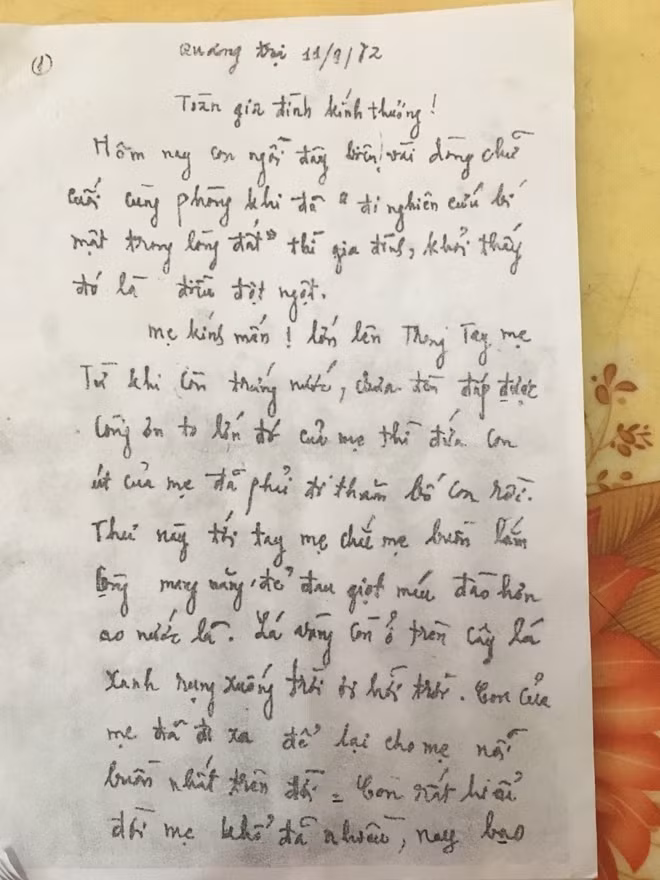 (1)
Quảng trị 11/9/72
Toàn gia đình kính thương!
Hôm nay con ngồi đây biên vài dòng chữ
cuối cùng phòng khi đã "đi nghiên cứu bí
mật trong lòng đất" thì gia đình, khỏi thấy
đó là điều đột ngột.
Mẹ kính mến! lớn lên Trong Tay mẹ
Từ khi còn trứng nước, chưa đền đáp được
Công ơn to lớn đó của mẹ thì đứa con
út của mẹ đã phải đi thăm bố con rồi.
Thư này tới tay mẹ chắc mẹ buồn lắm
mang nặng đẻ đau giọt máu đào hơn
ao nước lã. Lá vàng còn ở trên cây lá
xanh rụng xuống trời ơi hỡi trời. Con của
mẹ đã đi xa để lại cho mẹ nỗi
buồn nhất trên đời = Con rất hiểu
đời mẹ khổ đã nhiều, nay bao